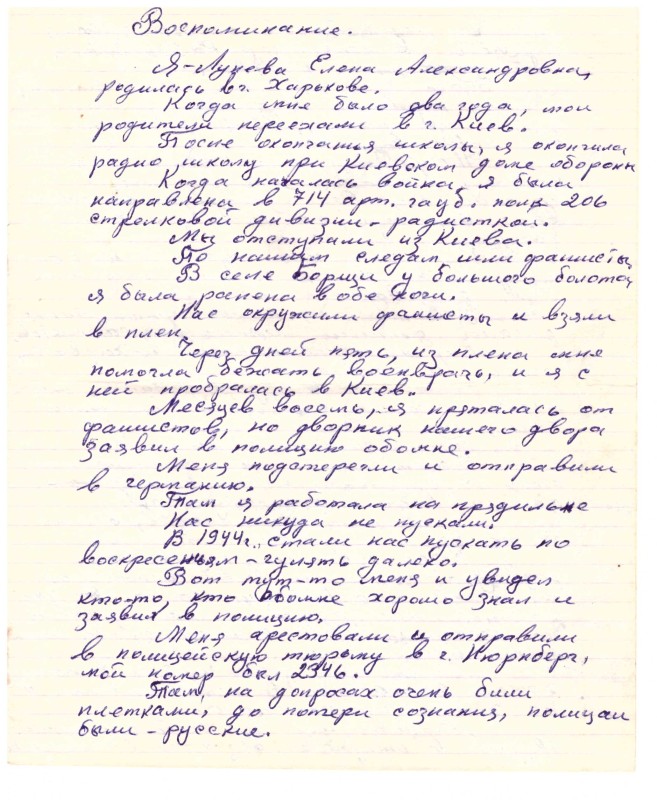 Воспоминание.
Я-Лунева Елена Александровна,
родилась в г. Харькове.
Когда мне было два года, мои
родители переехали в г. Киев.
После окончания школы, я окончила
радио школу при Киевском доме обороны
Когда началась война, я была
направлена в 714 арт. гауб. полк 206
стрелковой дивизии - радисткой.
Мы отступали из Киева.
По нашим следам шли фашисты,
В селе Борщи у большого болота,
я была ранена в обе ноги.
Нас окружили фашисты и взяли
в плен.
Через дней пять, из плена мне
помогла бежать военврачь, и я с
ней пробралась в Киев.
Месяцев восемь, я пряталась от
фашистов, но дворник нашего двора
заявил в полицию обомне.
Меня подстерегли и отправили
в германию.
Там я работала на прядильне
Нас никуда не пускали.
В 1944г. стали нас пускать по
воскресеньям - гулять далеко.
Вот тут-то меня и увидел
кто-то, кто обомне хорошо знал и
заявил в полицию.
Меня арестовали и отправили
в полицейскую тюрьму в г. Нюрнберг,
мой номер был 2346.
Там, на допросах очень били
плетками, до потери сознания, полицаи
были - русские.